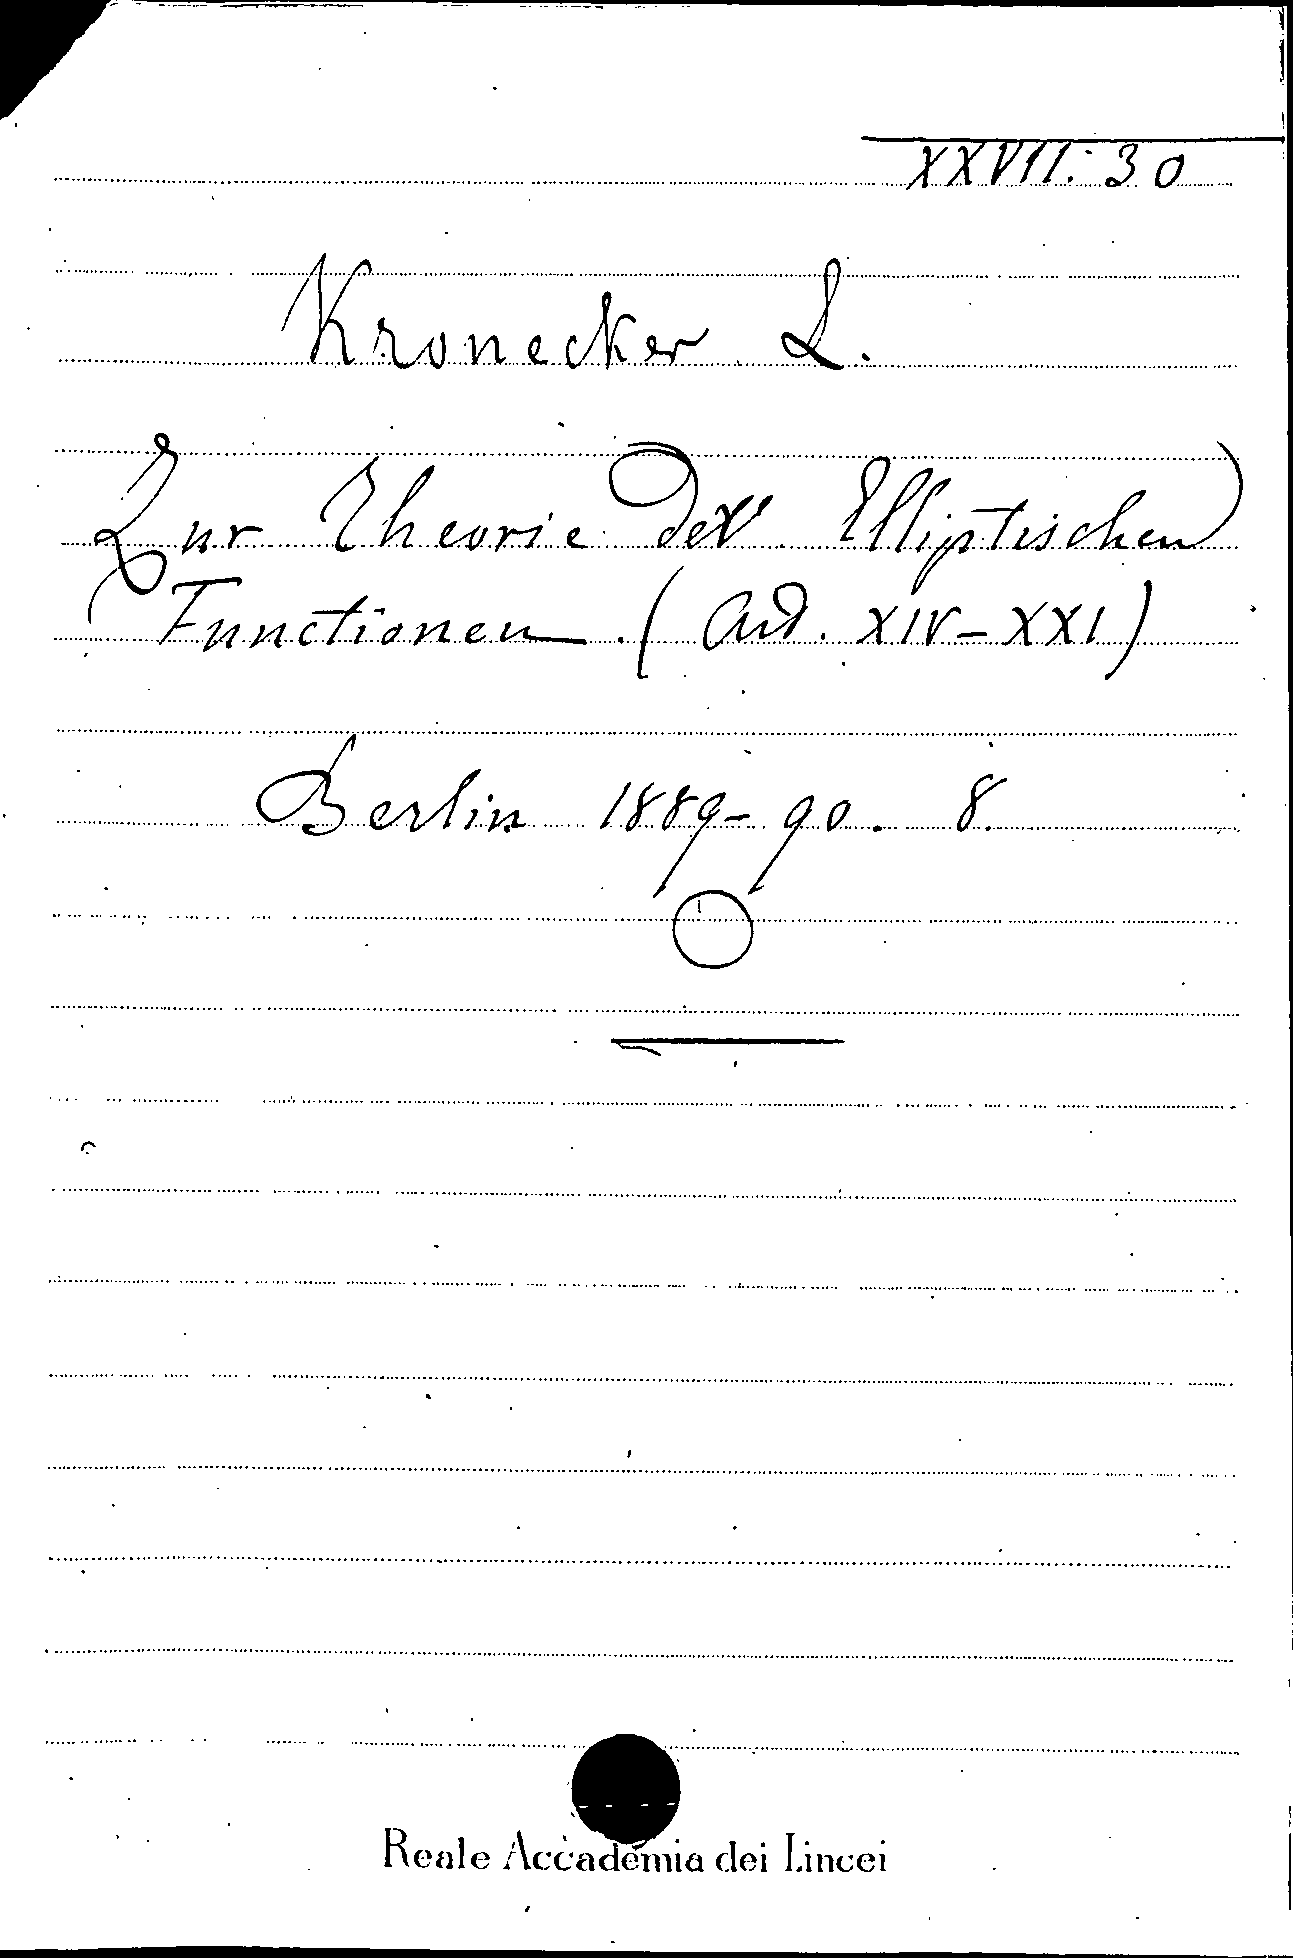 XXVII. 30
Kronecker L.
Zur Theorie der Elliptischen
Functionen (Art. XIV-XXI)
Berlin 1889-90. 8.
Reale Accademia dei Lincei